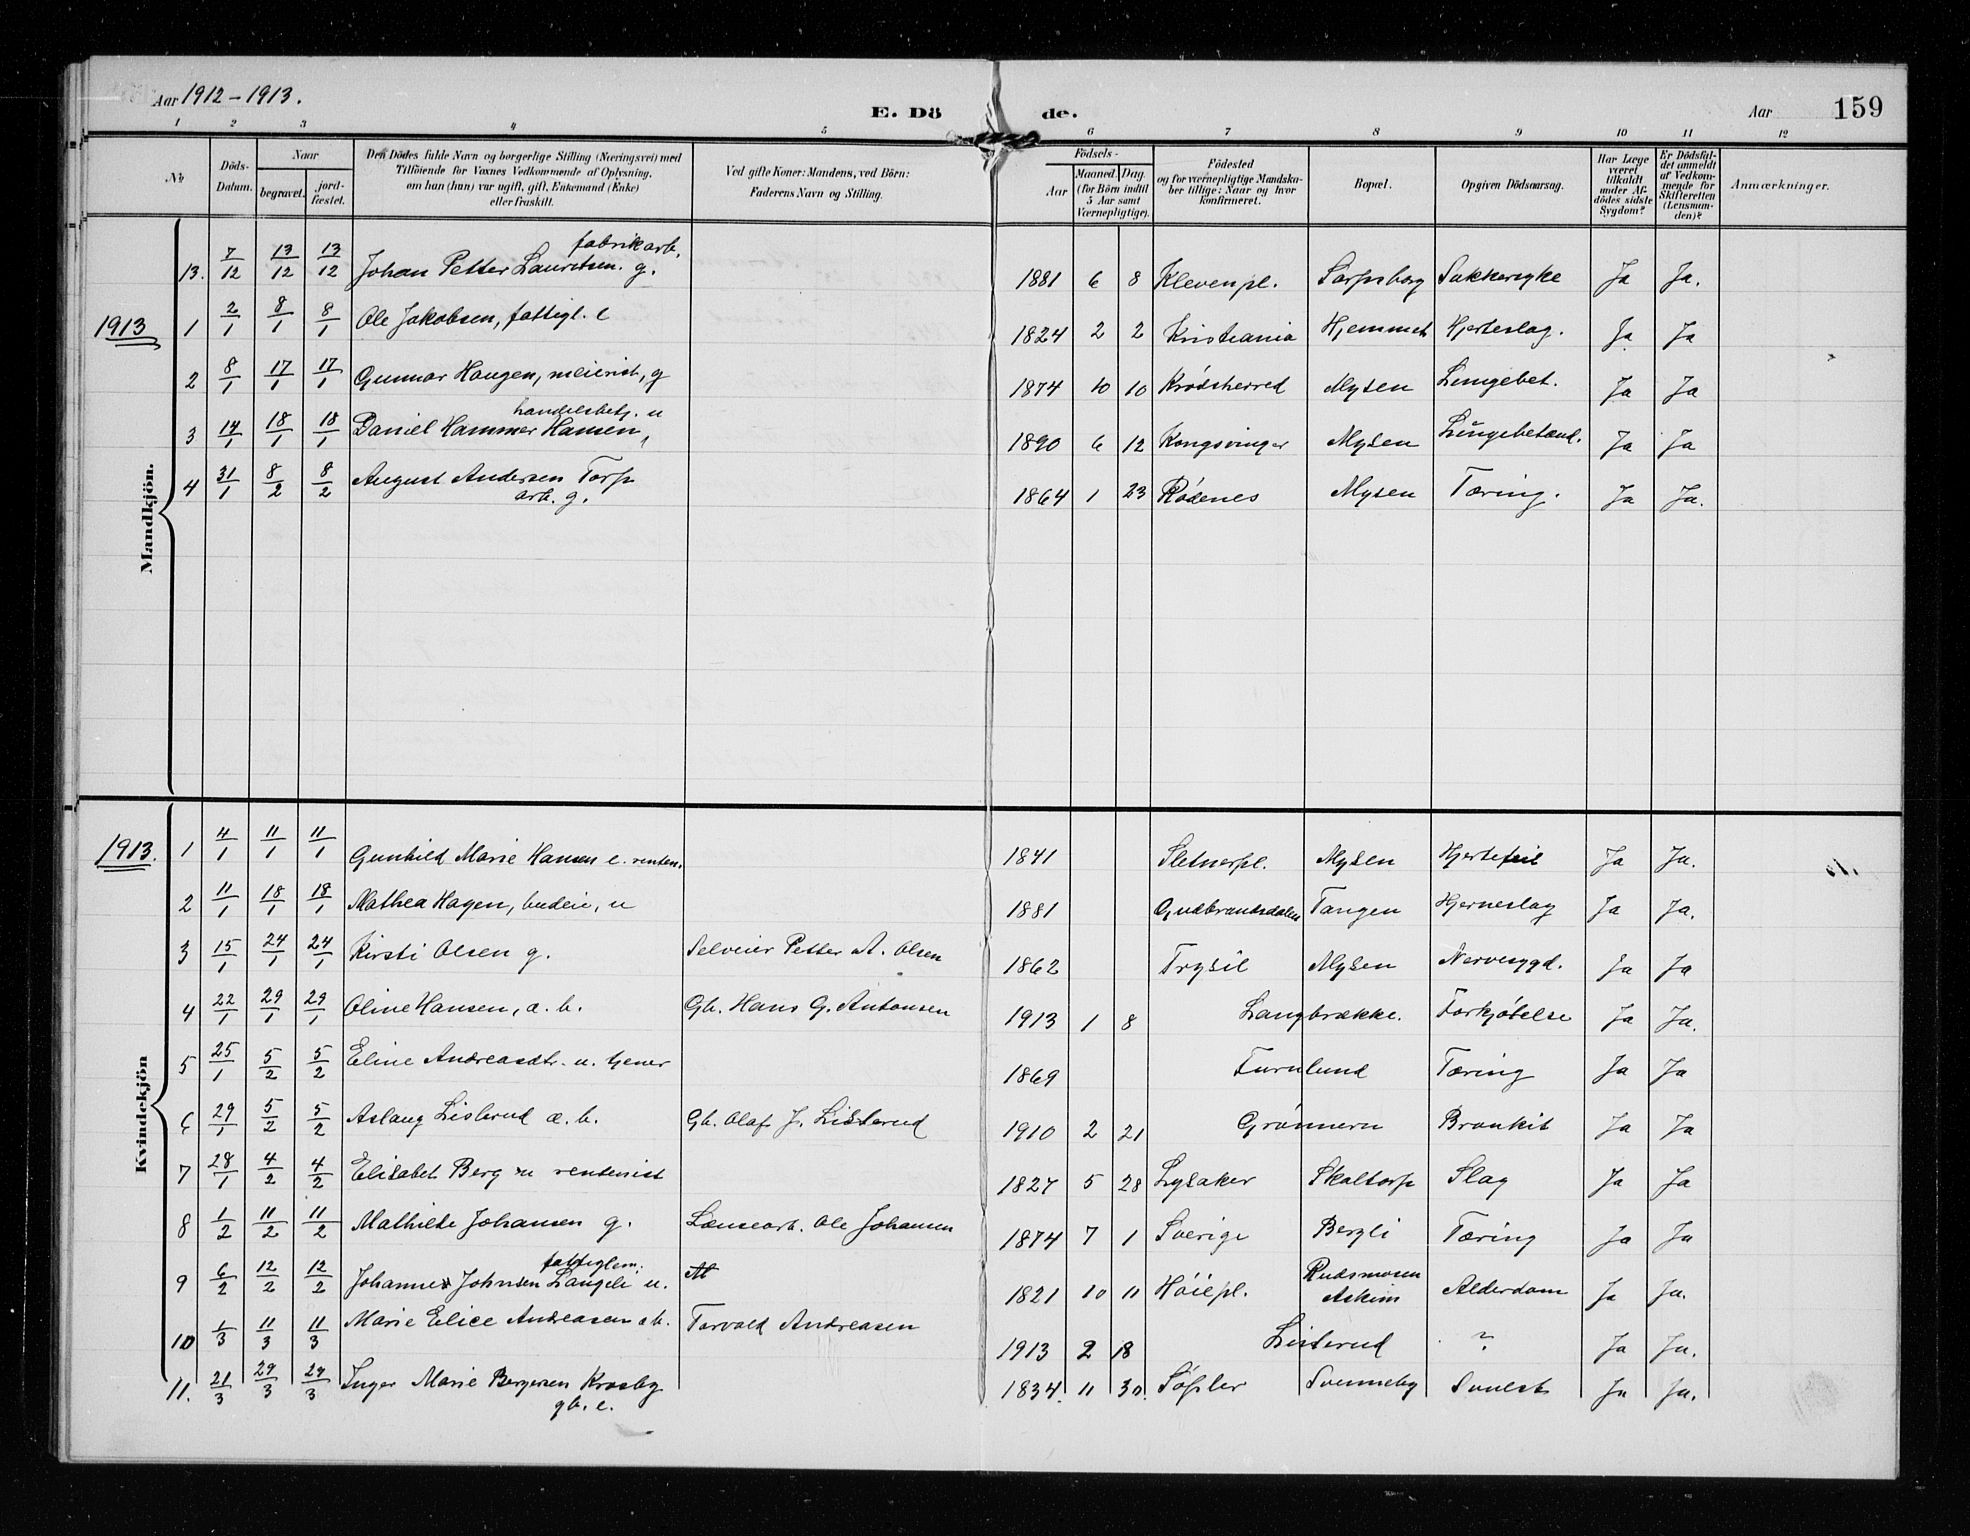 Aar 1912-1913.
E. Dö de.
Aar 159
1 2 3 4 5 6 7 8 9 10 11 12
No
Döds-Datum.
Naar
begravet.
jord-fæstet.
Den Dödes fulde Navn og borgerlige Stilling (Næringsvei) med
Tilföiende for Voxnes Vedkommende af Oplysning,
om han (hun) var ugift, gift, Enkemand (Enke)
eller fraskilt.
Ved gifte Koner: Mandens, ved Börn:
Faderens Navn og Stilling.
Födsels-
Aar
Maaned. Dag.
(for Börn indtil
5 Aar samt
Værnepligtige).
Födested
og for værnepligtige Mandska-
ber tillige: Naar og hvor
konfirmeret.
Bopæl.
Opgiven Dödsaarsag.
Har Læge
været
tilkaldt
under Af-
dödes sidste
Sygdom?
Er Dödsfal-
det anmeldt
af Vedkom-
mende for
Skifteretten
(Lensman-
den)?
Anmærkninger.
Mandkjön.
13. 7/12 13/12 13/12 Johan Petter Lauritsen. fabrikarb. g. 1881 6 8 Klevenpl. Sarpsborg Sukkersyke Ja Ja.
1913 1 2/1 8/1 8/1 Ole Jakobsen, fattigl. e 1824 2 2 Kristiania Hjemmet Hjerteslag. Ja Ja
2 8/1 17/1 17/1 Gunnar Haugen, meierist, g 1874 10 10 Krödsherred Mysen Lungebet. Ja Ja
3 14/1 18/1 18/1 Daniel Hammer Hansen, handelsbetj. u 1890 6 12 Kongsvinger Mysen Lungebetænd. Ja Ja
4 31/1 8/2 8/2 August Andersen Torp
arb. g. 1864 1 23 Rödenes Mysen Tæring. Ja Ja.
Kvindekjön
1913. 1 4/1 11/1 11/1 Gunhild Marie Hansen e. renten. 1841 Sletnerpl. Mysen Hjertefeil Ja Ja.
2 11/1 18/1 18/1 Mathea Hagen, budeie, u 1881 Gudbrandsdalen Tangen Hjerneslag Ja Ja.
3 15/1 24/1 24/1 Kirsti Olsen g. Selveier Petter A. Olsen 1862 Trysil Mysen Nervesygd. Ja Ja
4 22/1 29/1 29/1 Oline Hansen, æ. b. Gb. Hans G. Antonsen 1913 1 8 Langbrække. Forkjölelse Ja Ja.
5 25/1 5/2 5/2 Eline Andreasdtr. u. tjener 1869 Furulund Tæring Ja Ja
6 29/1 5/2 5/2 Aslaug Listerud æ. b. Gb. Olaf J. Listerud 1910 2 21 Grönnern Bronkit Ja Ja
7 28/1 4/2 4/2 Elisabet Berg u rentenist 1827 5 28 Lysaker Skaltorp Slag Ja Ja
8 1/2 11/2 11/2 Mathilde Johansen g. Lænsearb. Ole Johansen 1874 7 1 Sverige Bergli Tæring Ja Ja
9 6/2 12/2 12/2 Johanne Johnsen Langeli fattiglem. u. 1821 10 11 Höiepl. Rudsmosen
Askim Alderdom Ja Ja.
10 1/3 11/3 11/3 Marie Elice Andreasen æ b. Torvald Andreasen 1913 2 18 Listerud ? Ja Ja.
11. 21/3 29/3 29/3 Inger Marie Bergersen Krosby
gb. e. 1834. 11 30. Svenneby Svulst Ja Ja.